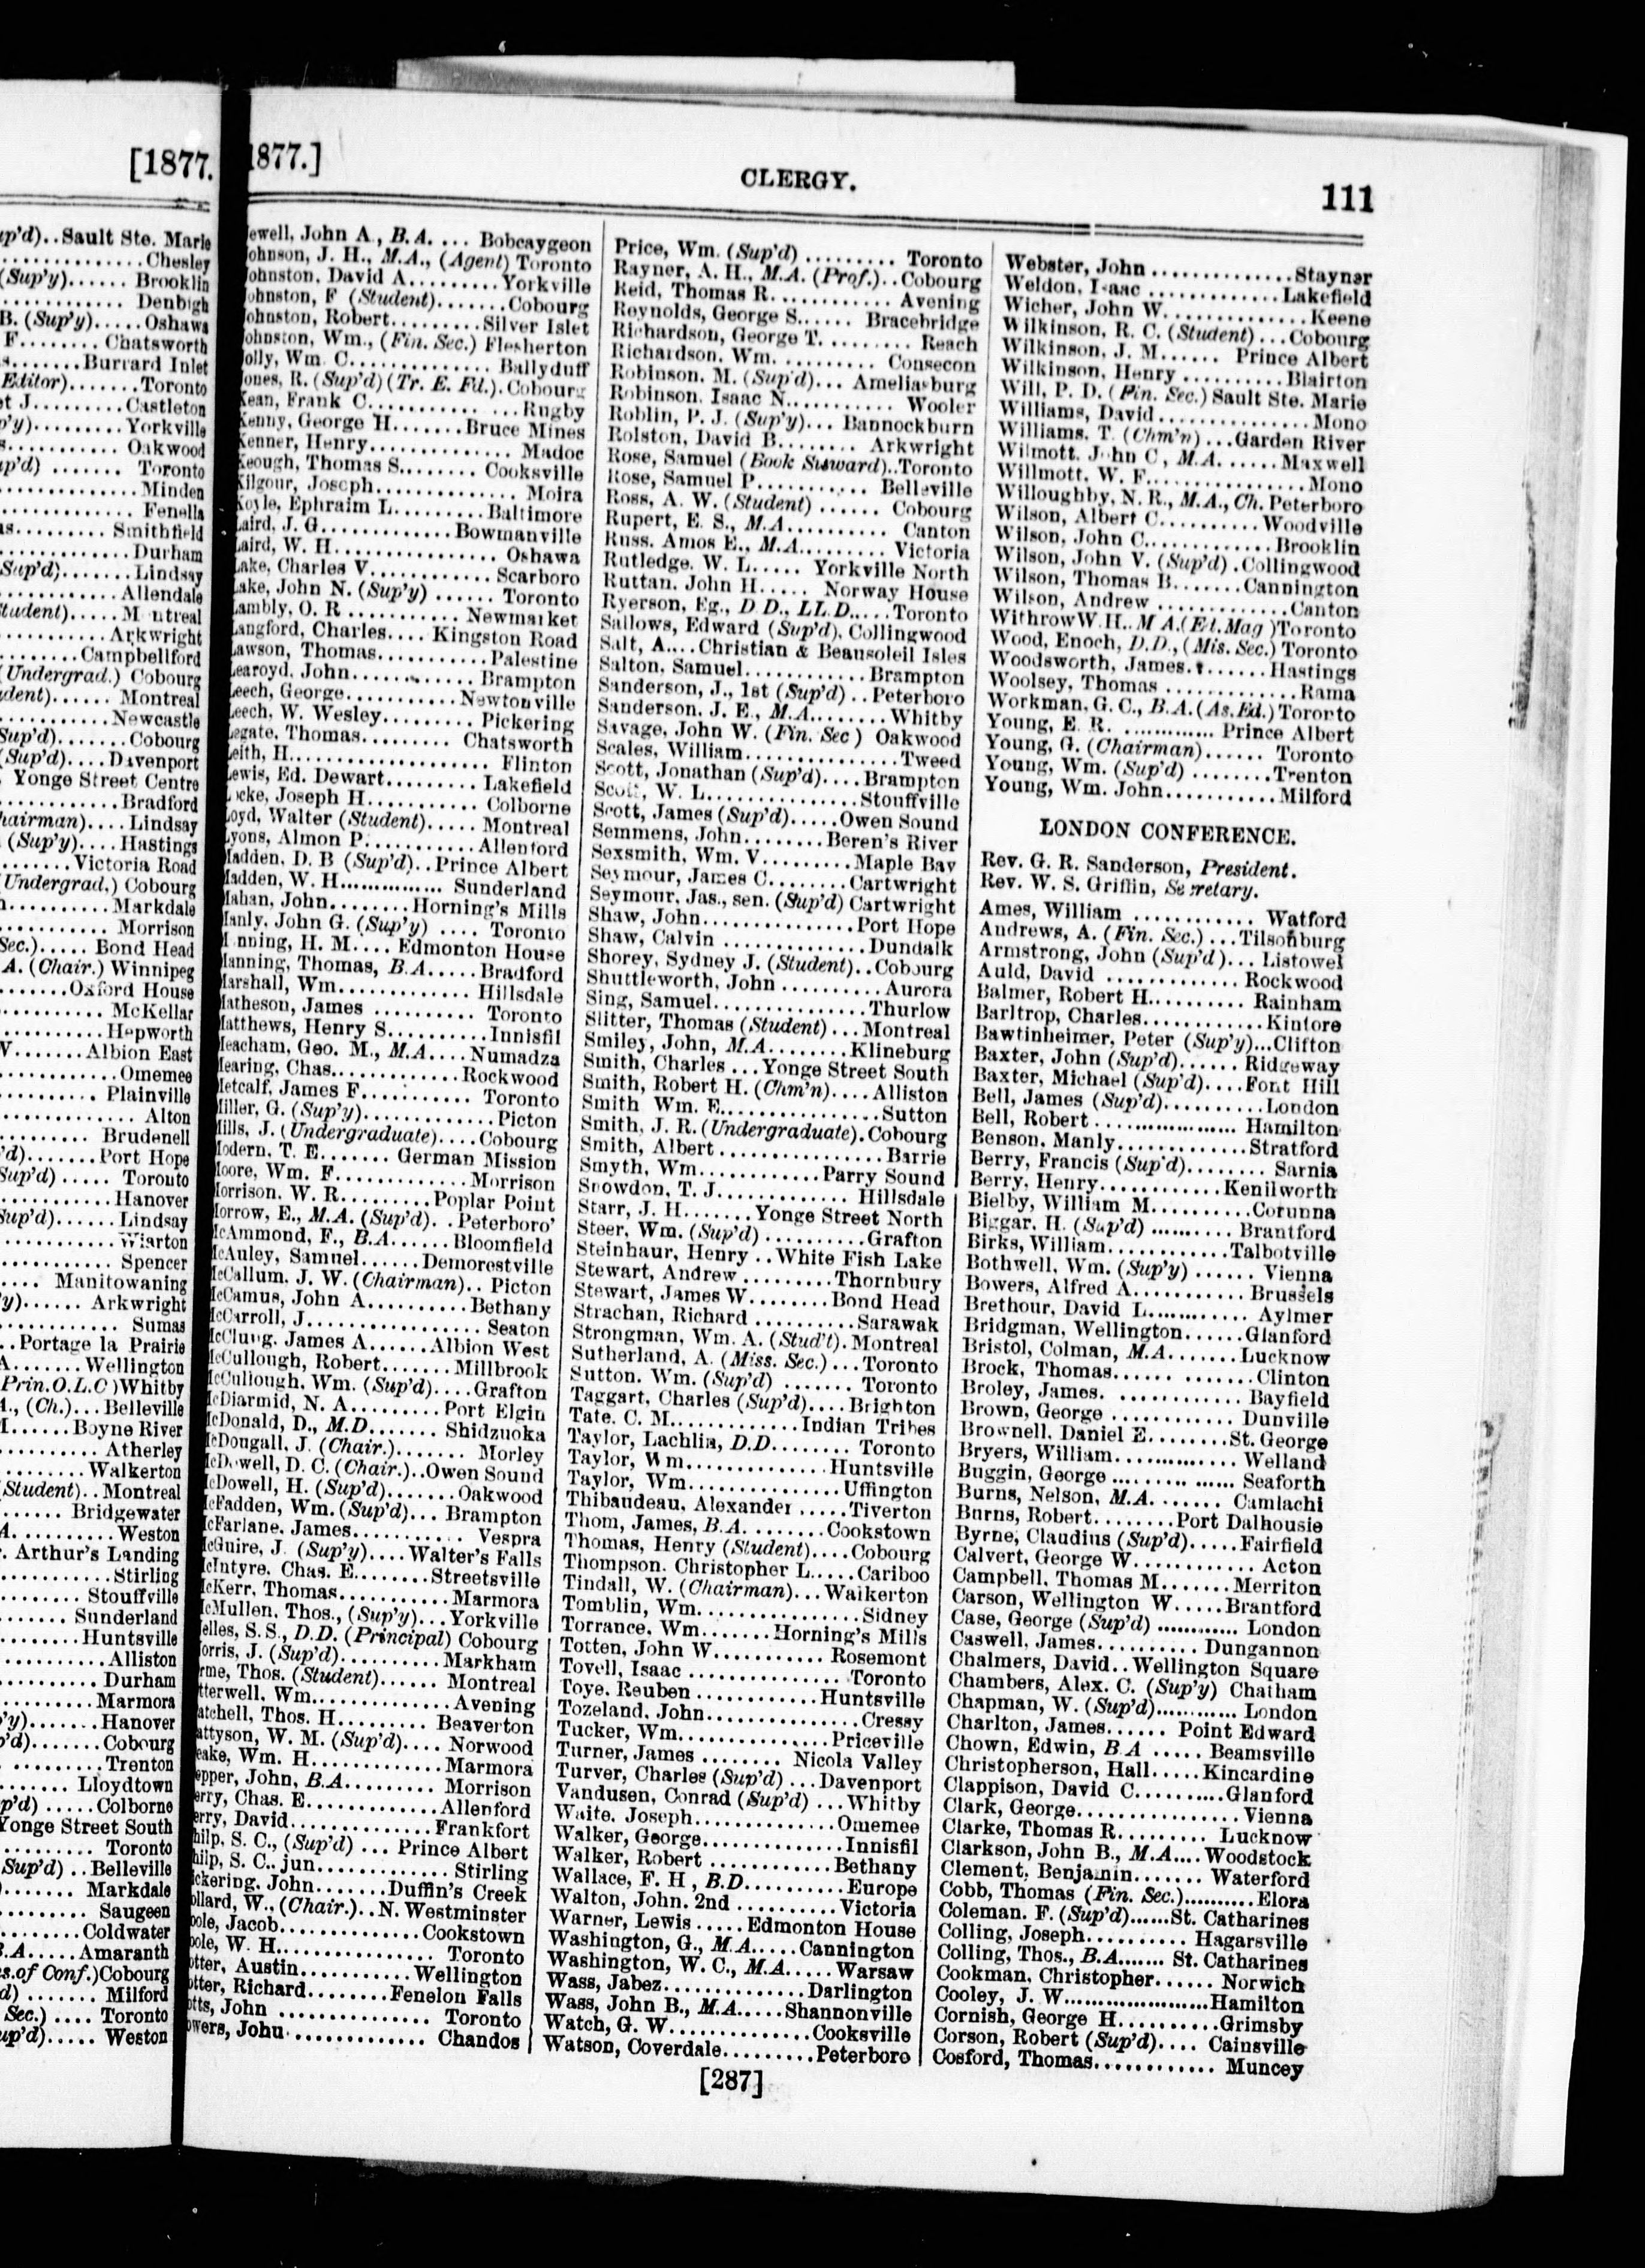 [1877.
up'd)..Sault Ste. Marie
Chesley
(Sup'y)...... Brooklin
Denbigh
B. (Sup'y).....Oshawa
F........ Chatsworth
s.......Burrard Inlet
Editor).......Toronto
et J........Castleton
p'y)........Yorkville
s.......... Oakwood
up'd) ....... Toronto
Minden
Fenella
as......... Smithfield
Durham
Sup'd).......Lindsay
Allendale
tudent).....M ntreal
Arkwright
Campbellford
(Undergrad.) Cobourg
dent)...... Montreal
Newcastle
Sup'd).......Cobourg
(Sup'd)....Davenport
Yonge Street Centre
Bradford
hairman)....Lindsay
(Sup'y)....Hastings
Victoria Road
(Undergrad.) Cobourg
Markdale
Morrison
Sec.)..... Bond Head
A. (Chair.) Winnipeg
Oxford House
McKellar
Hepworth
V.......Albion East
Omemee
Plainville
Alton
Brudenell
'd).......Port Hope
Sup'd) ..... Toronto
Hanover
Sup'd)......Lindsay
Wiarton
Spencer
Manitowaning
'y)...... Arkwright
Sumas
..Portage la Prairie
A.......Wellington
Prin.O.L.C )Whitby
A., (Ch.)... Belleville
M......Boyne River
Atherley
Walkerton
(Student)..Montreal
Bridgewater
A..........Weston
. Arthur's Landing
Stirling
Stouffville
Sunderland
Huntsville
Alliston
Durham
Marmora
'y).......Hanover
'd).......Cobourg
Trenton
Lloydtown
p'd) .....Colborne
Yonge Street South
Toronto
Sup'd) ..Belleville
Markdale
Saugeen
Coldwater
B.A.....Amaranth
s.of Conf.)Cobourg
d) ....... Milford
Sec.) .... Toronto
up'd)..... Weston
1877.]
CLERGY.
111
ewell, John A., B.A. ... Bobcaygeon
ohnson, J. H., M.A., (Agent) Toronto
ohnston, David A.........Yorkville
ohnston, F (Student).......Cobourg
ohnston, Robert.........Silver Islet
ohnston, Wm., (Fin. Sec.) Flesherton
olly, Wm. C.............. Ballyduff
ones, R. (Sup'd) (Tr. E. Fd.).Cobourg
Kean, Frank C...............Rugby
Kenny, George H.......Bruce Mines
Kenner, Henry............... Madoc
Keough, Thomas S........ Cooksville
Kilgour, Joseph............... Moira
Koyle, Ephraim L.........Baltimore
Laird, J. G.............Bowmanville
Laird, W. H................. Oshawa
Lake, Charles V............Scarboro
Lake, John N. (Sup'y) ...... Toronto
Lambly, O. R ........... Newmarket
Langford, Charles.... Kingston Road
Lawson, Thomas...........Palestine
Learoyd, John............ Brampton
Leech, George...........Newtonville
Leech, W. Wesley......... Pickering
Legate, Thomas......... Chatsworth
Leith, H.................... Flinton
Lewis, Ed. Dewart......... Lakefield
Locke, Joseph H............ Colborne
Loyd, Walter (Student)..... Montreal
Lyons, Almon P............Allenford
Madden, D. B (Sup'd)..Prince Albert
Madden, W. H............... Sunderland
Mahan, John........Horning's Mills
Manly, John G. (Sup'y) .... Toronto
M nning, H. M.... Edmonton House
Manning, Thomas, B.A.....Bradford
Marshall, Wm............. Hillsdale
Matheson, James .......... Toronto
Matthews, Henry S..........Innisfil
Meacham, Geo. M., M.A....Numadza
Mearing, Chas.............Rockwood
Metcalf, James F........... Toronto
Miller, G. (Sup'y).............Picton
Mills, J. (Undergraduate)....Cobourg
Modern, T. E....... German Mission
Moore, Wm. F.............Morrison
Morrison, W. R.........Poplar Point
Morrow, E., M.A. (Sup'd). .Peterboro'
McAmmond, F., B.A......Bloomfield
McAuley, Samuel......Demorestville
McCallum, J. W. (Chairman).. Picton
McCamus, John A..........Bethany
McCarroll, J.................. Seaton
McClung, James A......Albion West
McCullough, Robert.......Millbrook
McCullough, Wm. (Sup'd)....Grafton
McDiarmid, N. A.........Port Elgin
McDonald, D., M.D....... Shidzuoka
McDougall, J. (Chair.)........ Morley
McDowell, D. C. (Chair.)..Owen Sound
McDowell, H. (Sup'd).......Oakwood
McFadden, Wm. (Sup'd)... Brampton
McFarlane, James........... Vespra
McGuire, J. (Sup'y)....Walter's Falls
McIntyre, Chas. E........Streetsville
McKerr, Thomas............Marmora
McMullen, Thos., (Sup'y)...Yorkville
elles, S. S., D.D. (Principal) Cobourg
orris, J. (Sup'd)..........Markham
rme, Thos. (Student)....... Montreal
tterwell, Wm.............. Avening
atchell, Thos. H......... Beaverton
attyson, W. M. (Sup'd).... Norwood
eake, Wm. H.............Marmora
epper, John, B.A......... Morrison
erry, Chas. E.............Allenford
erry, David..............Frankfort
hilp, S. C., (Sup'd) ... Prince Albert
hilp, S. C., jun..............Stirling
ickering, John.......Duffin's Creek
ollard, W., (Chair.)..N. Westminster
oole, Jacob..............Cookstown
oole, W. H............... Toronto
otter, Austin...........Wellington
otter, Richard........Fenelon Falls
otts, John ............... Toronto
owers, John............. Chandos
Price, Wm. (Sup'd) ......... Toronto
Rayner, A. H., M.A. (Prof.)..Cobourg
Reid, Thomas R............ Avening
Reynolds, George S...... Bracebridge
Richardson, George T. ........ Reach
Richardson, Wm. .......... Consecon
Robinson, M. (Sup'd)... Ameliasburg
Robinson, Isaac N........... Wooler
Roblin, P. J. (Sup'y)... Bannockburn
Rolston, David B........ Arkwright
Rose, Samuel (Book Steward)..Toronto
Rose, Samuel P........... Belleville
Ross, A. W. (Student) ...... Cobourg
Rupert, E. S., M.A.......... Canton
Russ, Amos E., M.A......... Victoria
Rutledge, W. L..... Yorkville North
Ruttan, John H..... Norway House
Ryerson, Eg., D D., LL.D.....Toronto
Sallows, Edward (Sup'd), Collingwood
Salt, A....Christian & Beausoleil Isles
Salton, Samuel............ Brampton
Sanderson, J., 1st (Sup'd) .. Peterboro
Sanderson, J. E., M.A........Whitby
Savage, John W. (Fin. Sec ) Oakwood
Scales, William............... Tweed
Scott, Jonathan (Sup'd)....Brampton
Scott, W. L...............Stouffville
Scott, James (Sup'd).....Owen Sound
Semmens, John.........Beren's River
Sexsmith, Wm. V.........Maple Bay
Seymour, James C........Cartwright
Seymour, Jas., sen. (Sup'd) Cartwright
Shaw, John...............Port Hope
Shaw, Calvin .............. Dundalk
Shorey, Sydney J. (Student)..Cobourg
Shuttleworth, John .......... Aurora
Sing, Samuel................Thurlow
Slitter, Thomas (Student) ... Montreal
Smiley, John, M.A........Klineburg
Smith, Charles ... Yonge Street South
Smith, Robert H. (Chm'n)....Alliston
Smith Wm. E.................Sutton
Smith, J. R. (Undergraduate).Cobourg
Smith, Albert.................Barrie
Smyth, Wm............Parry Sound
Snowdon, T. J............. Hillsdale
Starr, J. H.......Yonge Street North
Steer, Wm. (Sup'd) ..........Grafton
Steinhaur, Henry ..White Fish Lake
Stewart, Andrew .........Thornbury
Stewart, James W........Bond Head
Strachan, Richard ..........Sarawak
Strongman, Wm. A. (Stud't).Montreal
Sutherland, A. (Miss. Sec.) ...Toronto
Sutton, Wm. (Sup'd) ....... Toronto
Taggart, Charles (Sup'd)....Brighton
Tate, C. M.............Indian Tribes
Taylor, Lachlin, D.D........ Toronto
Taylor, Wm...............Huntsville
Taylor, Wm................Uffington
Thibaudeau, Alexander .....Tiverton
Thom, James, B.A........Cookstown
Thomas, Henry (Student)....Cobourg
Thompson, Christopher L.....Cariboo
Tindall, W. (Chairman)... Walkerton
Tomblin, Wm.................Sidney
Torrance, Wm.......Horning's Mills
Totten, John W........... Rosemont
Tovell, Isaac ................Toronto
Toye, Reuben ............Huntsville
Tozeland, John...............Cressy
Tucker, Wm............... Priceville
Turner, James ........ Nicola Valley
Turver, Charles (Sup'd) ...Davenport
Vandusen, Conrad (Sup'd) ...Whitby
Waite, Joseph...............Omemee
Walker, George..............Innisfil
Walker, Robert ............Bethany
Wallace, F. H, B.D..........Europe
Walton, John. 2nd ..........Victoria
Warner, Lewis .....Edmonton House
Washington, G., M.A.....Cannington
Washington, W. C., M.A.....Warsaw
Wass, Jabez...............Darlington
Wass, John B., M.A.....Shannonville
Watch, G. W..............Cooksville
Watson, Coverdale.........Peterboro
Webster, John ..............Stayner
Weldon, Isaac .............Lakefield
Wicher, John W..............Keene
Wilkinson, R. C. (Student)...Cobourg
Wilkinson, J. M...... Prince Albert
Wilkinson, Henry ..........Blairton
Will, P. D. (Fin. Sec.) Sault Ste. Marie
Williams, David...............Mono
Williams, T. (Chm'n) ...Garden River
Wilmott, John C, M.A......Maxwell
Willmott, W. F................Mono
Willoughby, N. R., M.A., Ch. Peterboro
Wilson, Albert C..........Woodville
Wilson, John C.............Brooklin
Wilson, John V. (Sup'd) .Collingwood
Wilson, Thomas B.......Cannington
Wilson, Andrew .............Canton
Withrow W.H., M A.(Ed.Mag )Toronto
Wood, Enoch, D.D., (Mis. Sec.) Toronto
Woodsworth, James........Hastings
Woolsey, Thomas .............Rama
Workman, G. C., B.A.(As.Ed.)Toronto
Young, E. R. ............ Prince Albert
Young, G. (Chairman)...... Toronto
Young, Wm. (Sup'd) ........Trenton
Young, Wm. John...........Milford
LONDON CONFERENCE.
Rev. G. R. Sanderson, President.
Rev. W. S. Griffin, Secretary.
Ames, William ............ Watford
Andrews, A. (Fin. Sec.) ...Tilsonburg
Armstrong, John (Sup'd)... Listowel
Auld, David .............Rockwood
Balmer, Robert H.......... Rainham
Barltrop, Charles............Kintore
Bawtinheimer, Peter (Sup'y)...Clifton
Baxter, John (Sup'd)...... Ridgeway
Baxter, Michael (Sup'd)....Font Hill
Bell, James (Sup'd)..........London
Bell, Robert ................. Hamilton
Benson, Manly.............Stratford
Berry, Francis (Sup'd)........ Sarnia
Berry, Henry............Kenilworth
Bielby, William M..........Corunna
Biggar, H. (Sup'd) ......... Brantford
Birks, William............Talbotville
Bothwell, Wm. (Sup'y) ...... Vienna
Bowers, Alfred A............Brussels
Brethour, David L.......... Aylmer
Bridgman, Wellington......Glanford
Bristol, Colman, M.A.......Lucknow
Brock, Thomas..............Clinton
Broley, James. ............ Bayfield
Brown, George ............ Dunville
Brownell, Daniel E........St. George
Bryers, William............ Welland
Buggin, George ............. Seaforth
Burns, Nelson, M.A....... Camlachi
Burns, Robert........Port Dalhousie
Byrne, Claudius (Sup'd).....Fairfield
Calvert, George W............ Acton
Campbell, Thomas M.......Merriton
Carson, Wellington W.....Brantford
Case, George (Sup'd) ............ London
Caswell, James.......... Dungannon
Chalmers, David..Wellington Square
Chambers, Alex. C. (Sup'y) Chatham
Chapman, W. (Sup'd)............ London
Charlton, James...... Point Edward
Chown, Edwin, B A ..... Beamsville
Christopherson, Hall.....Kincardine
Clappison, David C..........Glanford
Clark, George................Vienna
Clarke, Thomas R......... Lucknow
Clarkson, John B., M.A....Woodstock
Clement, Benjamin....... Waterford
Cobb, Thomas (Fin. Sec.)..........Elora
Coleman, F. (Sup'd)......St. Catharines
Colling, Joseph.......... Hagarsville
Colling, Thos., B.A....... St. Catharines
Cookman, Christopher...... Norwich
Cooley, J. W....................Hamilton
Cornish, George H..........Grimsby
Corson, Robert (Sup'd).... Cainsville
Cosford, Thomas............ Muncey
[287]